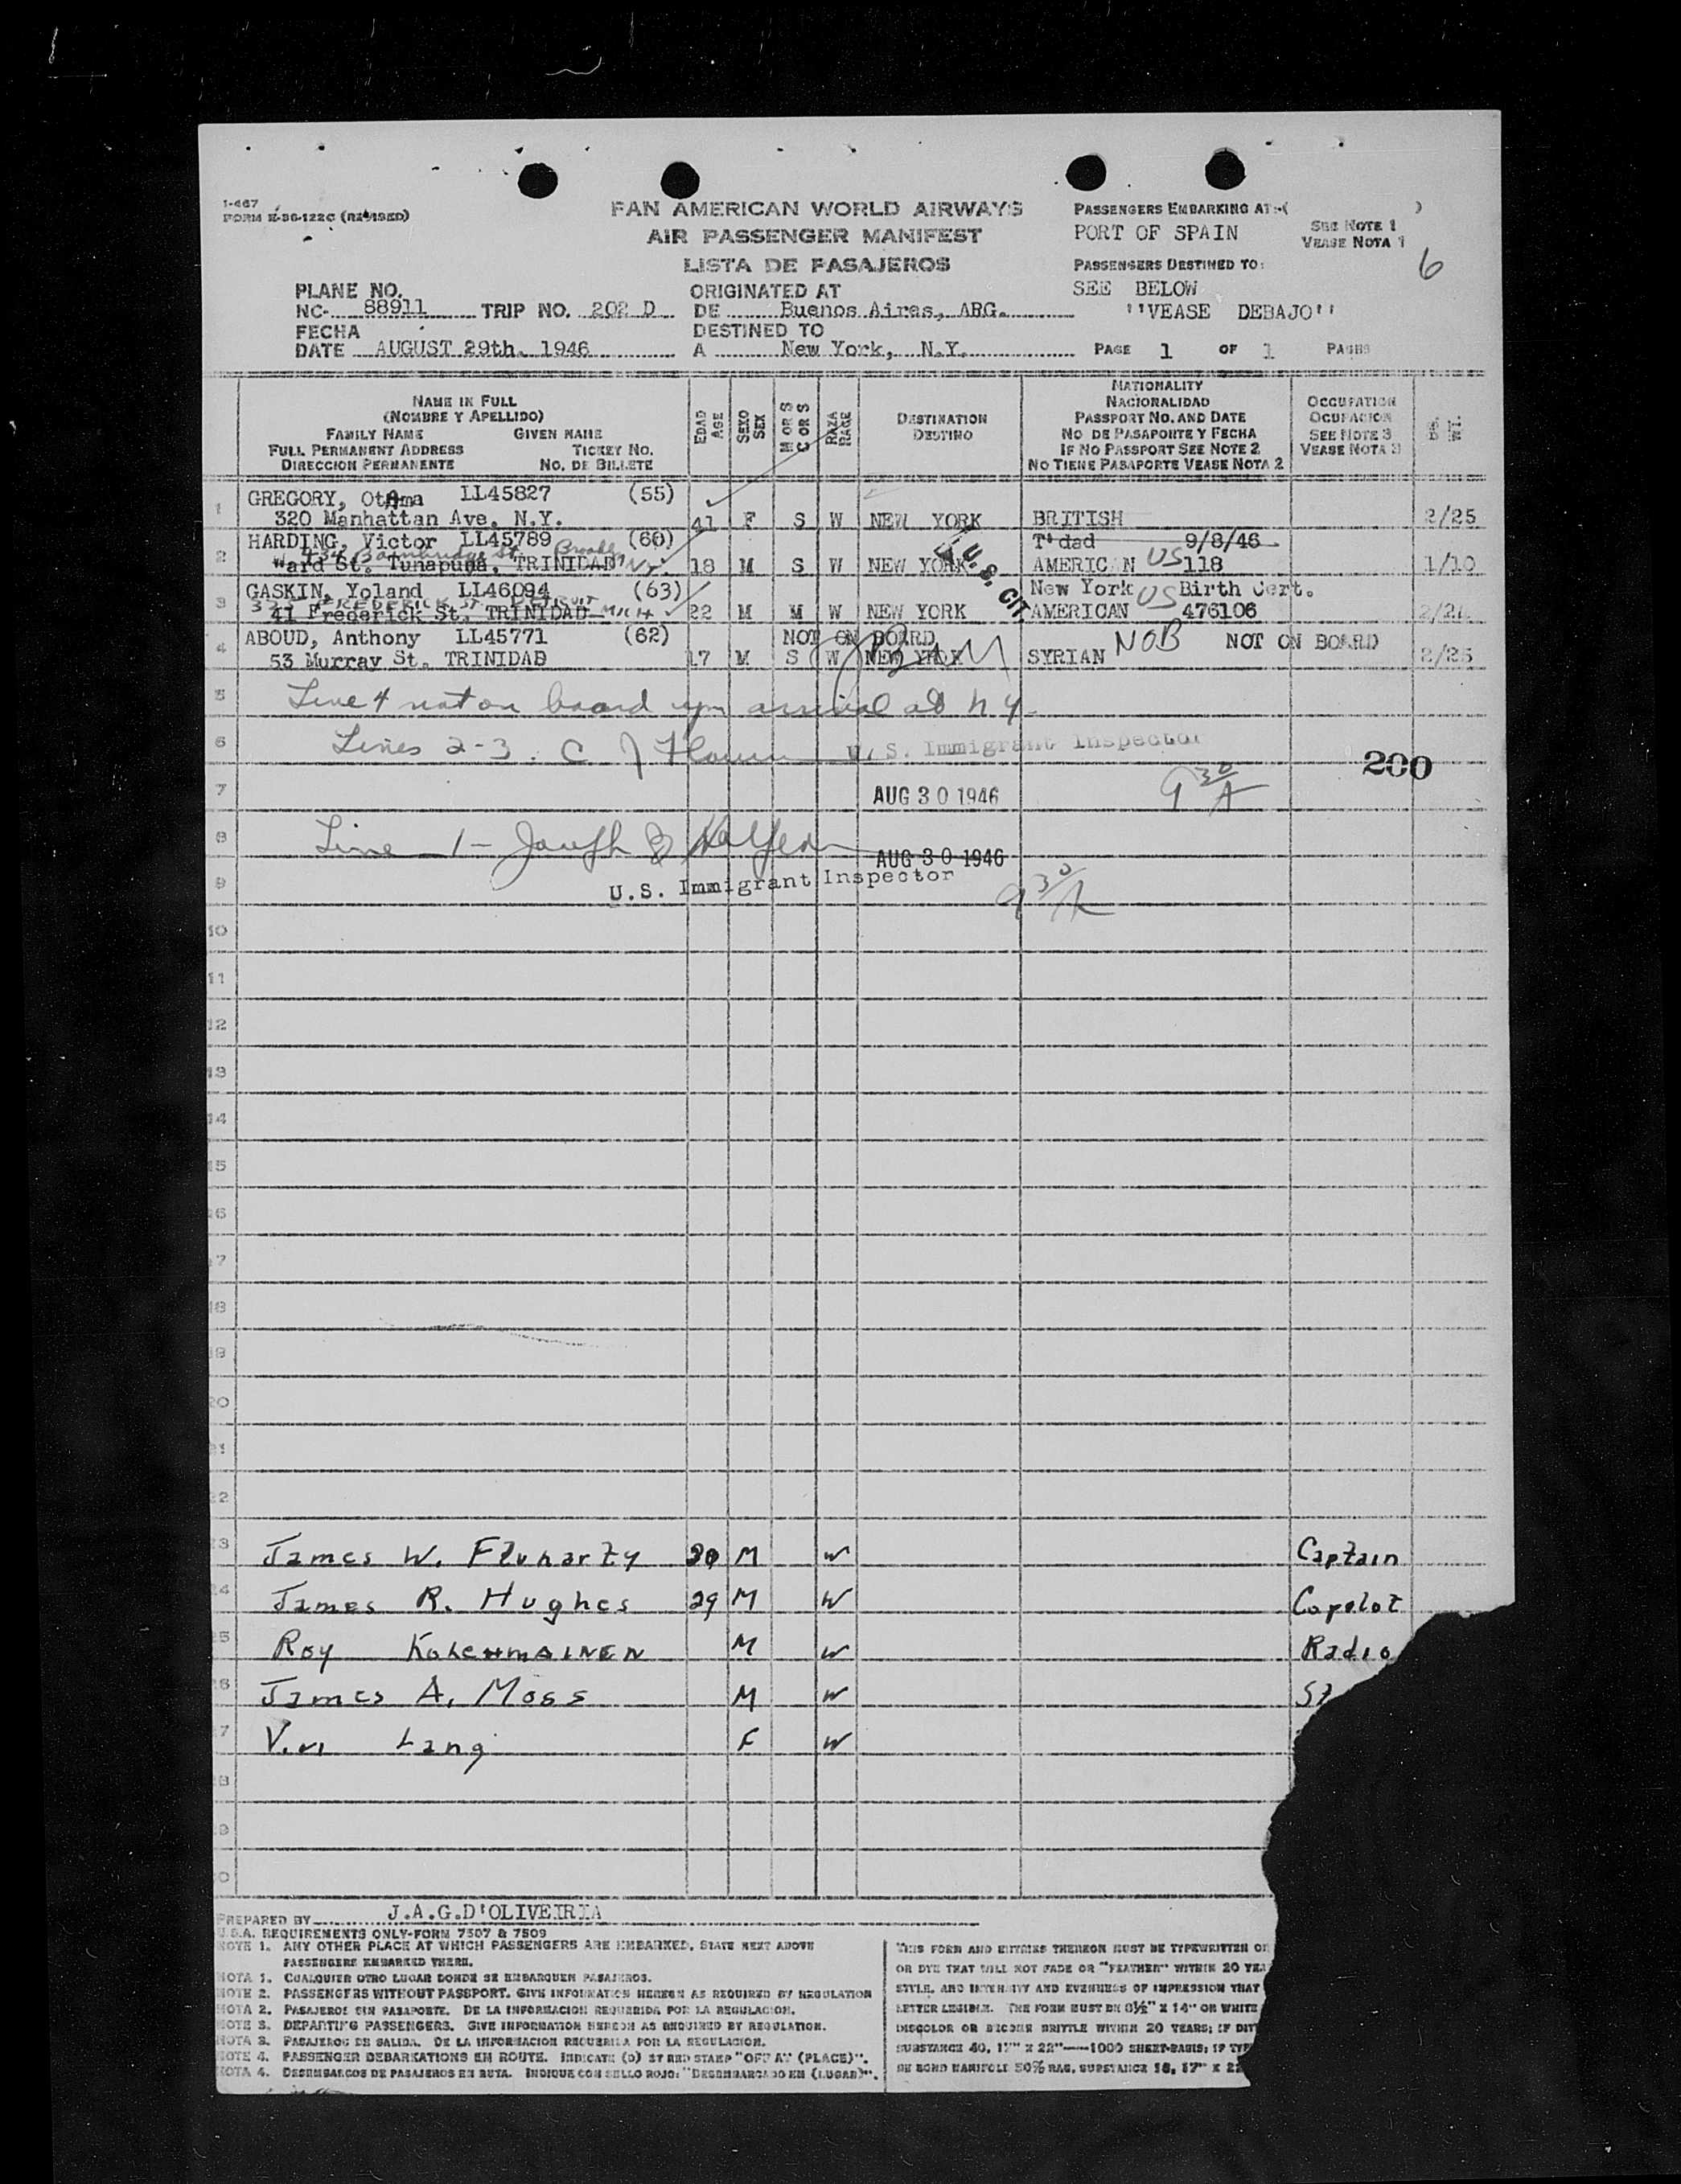 1-467
FORM E-36-122C (REVISED)
PAN AMERICAN WORLD AIRWAYS
AIR PASSENGER MANIFEST
LISTA DE PASAJEROS
PASSENGERS EMBARKING AT:-( )
PORT OF SPAIN
SEE NOTE 1
VEASE NOTA 1
PASSENGERS DESTINED TO:
6
SEE BELOW
''VEASE DEBAJO''
PLANE NO.
NC- 88911 TRIP NO. 202 D
ORIGINATED AT
DE Buenos Aires, ARG.
FECHA
DATE AUGUST 29th. 1946
DESTINED TO
A New York, N.Y.
PAGE 1 OF 1 PAGES
NAME IN FULL
(NOMBRE Y APELLIDO)
FAMILY NAME GIVEN NAME
FULL PERMANENT ADDRESS TICKET No.
DIRECCION PERMANENTE No. DE BILLETE
EDAD
AGE
SEXO
SEX
M OR S
C OR S
RAZA
RACE
DESTINATION
DESTINO
NATIONALITY
NACIONALIDAD
PASSPORT NO. AND DATE
NO DE PASAPORTE Y FECHA
IF NO PASSPORT SEE NOTE 2
NO TIENE PASAPORTE VEASE NOTA 2
OCCUPATION
OCUPACION
SEE NOTE 3
VEASE NOTA 3
1 GREGORY, Otama LL45827 (55)
320 Manhattan Ave. N.Y. 41 F S W NEW YORK BRITISH 2/25
2 HARDING, Victor LL45789 (60) T'dad 9/8/46
434 Bainbridge St. Brooklyn N.Y.
Ward St. Tunapuna. TRINIDAD 18 M S W NEW YORK AMERICAN US 118 1/10
U. S. CIT
3 GASKIN, Yoland LL46094 (63) New York US Birth Cert.
325 FREDERICK ST. DETROIT MICH
41 Frederick St. TRINIDAD 22 M M W NEW YORK AMERICAN 476106
4 ABOUD, Anthony LL45771 (62) NOT ON BOARD NOB NOT ON BOARD
53 Murray St. TRINIDAD 17 M S W NEW YORK SYRIAN 2/25
5 Line 4 not on board upon arrival at N Y.
6 Lines 2-3. C J U.S. Immigrant Inspector
200
7 AUG 30 1946 9 30/A
8 Line 1 - Joseph
AUG 30 1946
9 U.S. Immigrant Inspector 9 30/A
10
11
12
13
14
15
16
17
18
19
20
21
22
23 James W. Fluharty 30 M W Captain
24 James R. Hughes 29 M W Copilot
25 Roy KohEHmAINEN M W Radio
26 James A. Moss M W St
27 Lang F W
28
29
30
PREPARED BY J.A.G.D'OLIVEIRIA
U.S.A. REQUIREMENTS ONLY-FORM 7507 & 7509
NOTE 1. ANY OTHER PLACE AT WHICH PASSENGERS ARE EMBARKED, STATE NEXT ABOVE
PASSENGERS EMBARKED THERE.
NOTA 1. CUALQUIER OTRO LUGAR DONDE SE EMBARQUEN PASAJEROS.
NOTE 2. PASSENGERS WITHOUT PASSPORT. GIVE INFORMATION HEREON AS REQUIRED BY REGULATION
NOTA 2. PASAJEROS SIN PASAPORTE. DE LA INFORMACION REQUERIDA POR LA REGULACION.
NOTE 3. DEPARTING PASSENGERS. GIVE INFORMATION HEREON AS REQUIRED BY REGULATION.
NOTA 3. PASAJEROS DE SALIDA. DE LA INFORMACION REQUERIDA POR LA REGULACION.
NOTE 4. PASSENGER DEBARKATIONS EN ROUTE. INDICATE (D) BY RED STAMP "OFF AT (PLACE)".
NOTA 4. DESEMBARCOS DE PASAJEROS EN RUTA. INDIQUE CON SELLO ROJO: "DESEMBARCADO EN (LUGAR)".
THIS FORM AND ENTRIES THEREON MUST BE TYPEWRITTEN
OR DYE THAT WILL NOT FADE OR "FEATHER" WITHIN 20
STYLE, AND INTENSITY AND EVENNESS OF IMPRESSION THAT
LETTER LEGIBLE. THE FORM MUST BE 8½" X 14" ON WHITE
DISCOLOR OR BECOME BRITTLE WITHIN 20 YEARS; IF
SUBSTANCE 40, 17" X 22"—1000 SHEET-BASIS; IF
BE BOND MANIFOLD 50% RAG, SUBSTANCE 16, 17" X 22